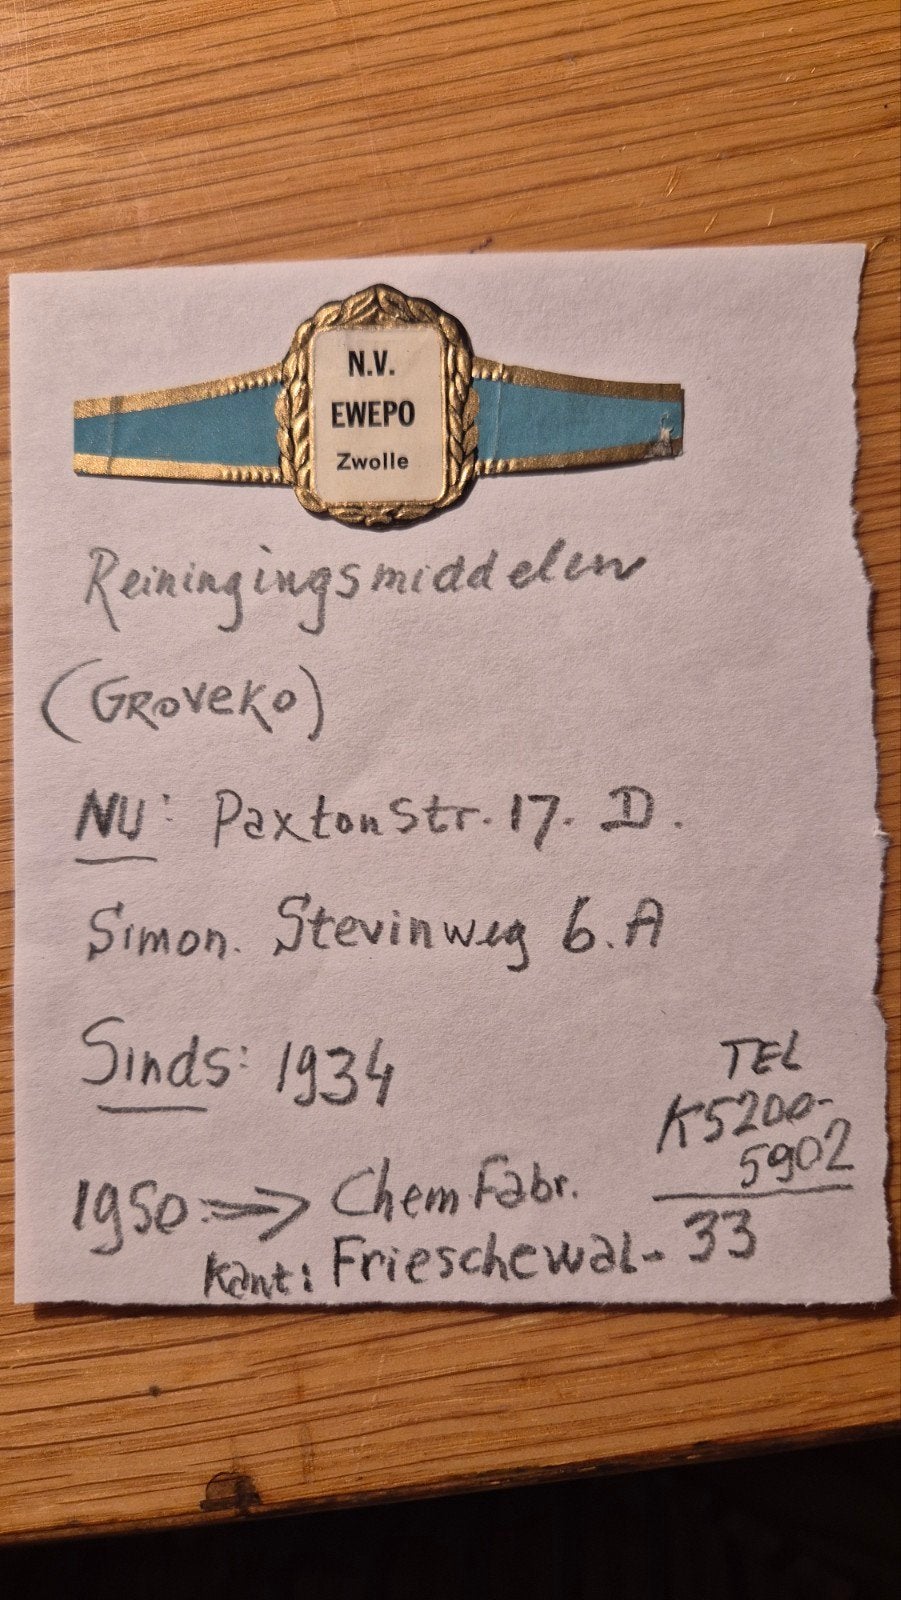 N.V.
EWEPO
Zwolle
Reiningingsmiddelen
(GROVEKO)
NU: Paxtonstr. 17. D.
Simon. Stevinweg 6.A
Sinds: 1934
TEL
K5200-
5902
1950 => Chem Fabr.
Kant: Friesche wal- 33